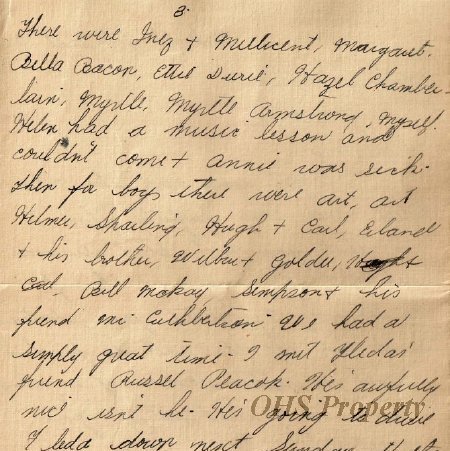 3.
There were Inez + Millicent, Margaret.
Bella Bacon, Ethel Durie, Hazel Chamber-
lain, Myrtle, Myrtle Armstrong, Myself.
Helen had a music lesson and
couldn't come + Annie was sick.
Then for boys there were Art, Art
Hilmer, Sparling, Hugh + Carl, Erland
+ his brother, Wilbur + Golder,
Bill McKay Simpson + his
friend Mr. Cuthbertson. We had a
simply great time. I met Fleda's
friend Russel Peacok. He's awfully
nice isn't he. He's going to drive
Fleda down next Sunday
OHS Property